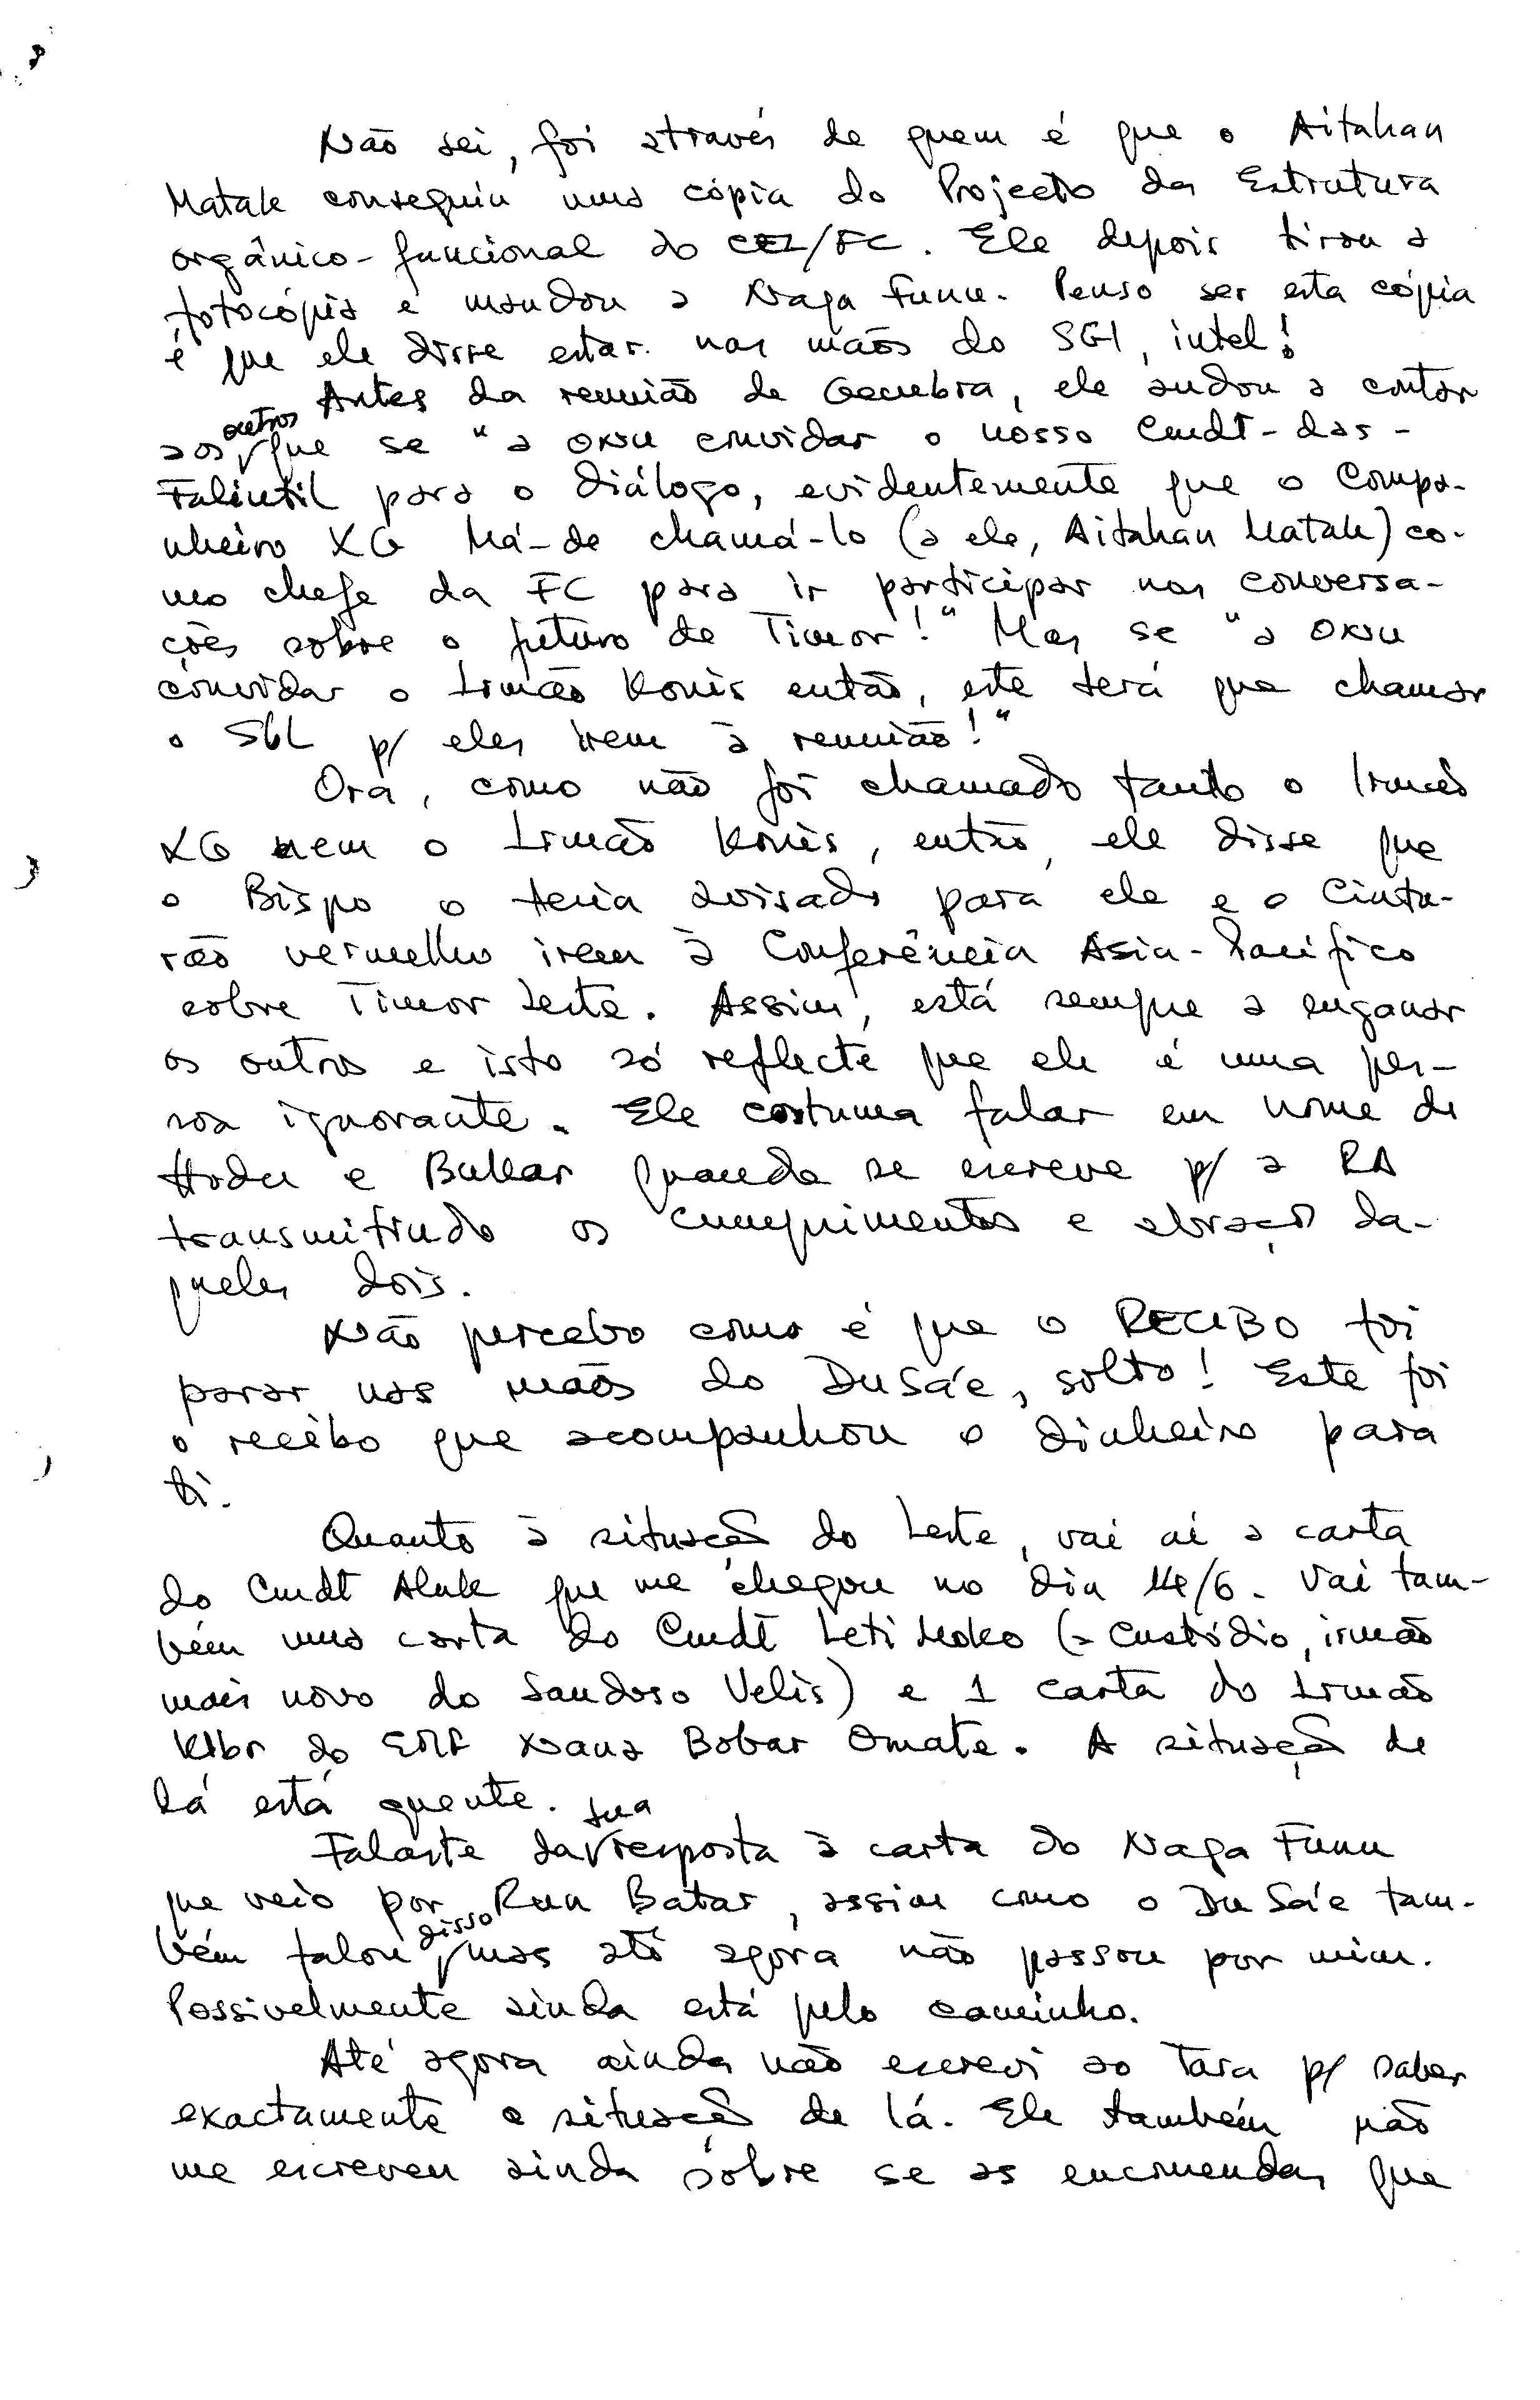 Não sei, foi através de quem é que o Aitahan
Matak conseguiu uma cópia do Projecto da Estrutura
orgânico-funcional do CEL/FC. Ele depois tirou a
fotocópia e mandou a Naga Funu. Penso ser esta cópia
é que ele disse estar nas mãos do SGI, intel!
Antes da reunião de Genebra, ele andou a contar
aos outros que se "a ONU convidar o nosso Cmdt-das-
Falintil para o diálogo, evidentemente que o Compa-
nheiro XG há-de chamá-lo (a ele, Aitahan Matak) co-
mo chefe da FC para ir participar nas conversa-
ções sobre o futuro de Timor!" Mas se "a ONU
convidar o Irmão Konis então, este terá que chamar
o SGL p/ eles irem à reunião!"
Ora, como não foi chamado tanto o Irmão
XG nem o Irmão Konis, então, ele disse que
o Bispo o teria avisado para ele e o Cintu-
rão vermelho irem à Conferência Asia-Pacífico
sobre Timor Leste. Assim, está sempre a enganar
os outros e isto só reflecte que ele é uma pes-
soa ignorante. Ele costuma falar em nome de
Hodu e Bukar quando se escreve p/ a RA
transmitindo os cumprimentos e abraços da-
queles dois.
Não percebo como é que o RECIBO foi
parar nas mãos do DuSá'e, solto! Este foi
o recibo que acompanhou o dinheiro para
ti.
Quanto à situação do Leste, vai aí a carta
do Cmdt Aluk que me chegou no dia 14/6. Vai tam-
bém uma carta do Cmdt Leti Moko (= Custódio, irmão
mais novo do Sandoso Velis) e 1 carta do Irmão
Klbr do Nana Bobar Omate. A situação de
lá está quente.
Falaste da sua resposta à carta do Naga Funu
que veio por Run Batar, assim como o Du Sá'e tam-
bém falou disso, mas até agora não passou por mim.
Possivelmente ainda está pelo caminho.
Até agora ainda não escrevi ao Tara p/ saber
exactamente a situação de lá. Ele também não
me escreveu ainda sobre se as encomendas que